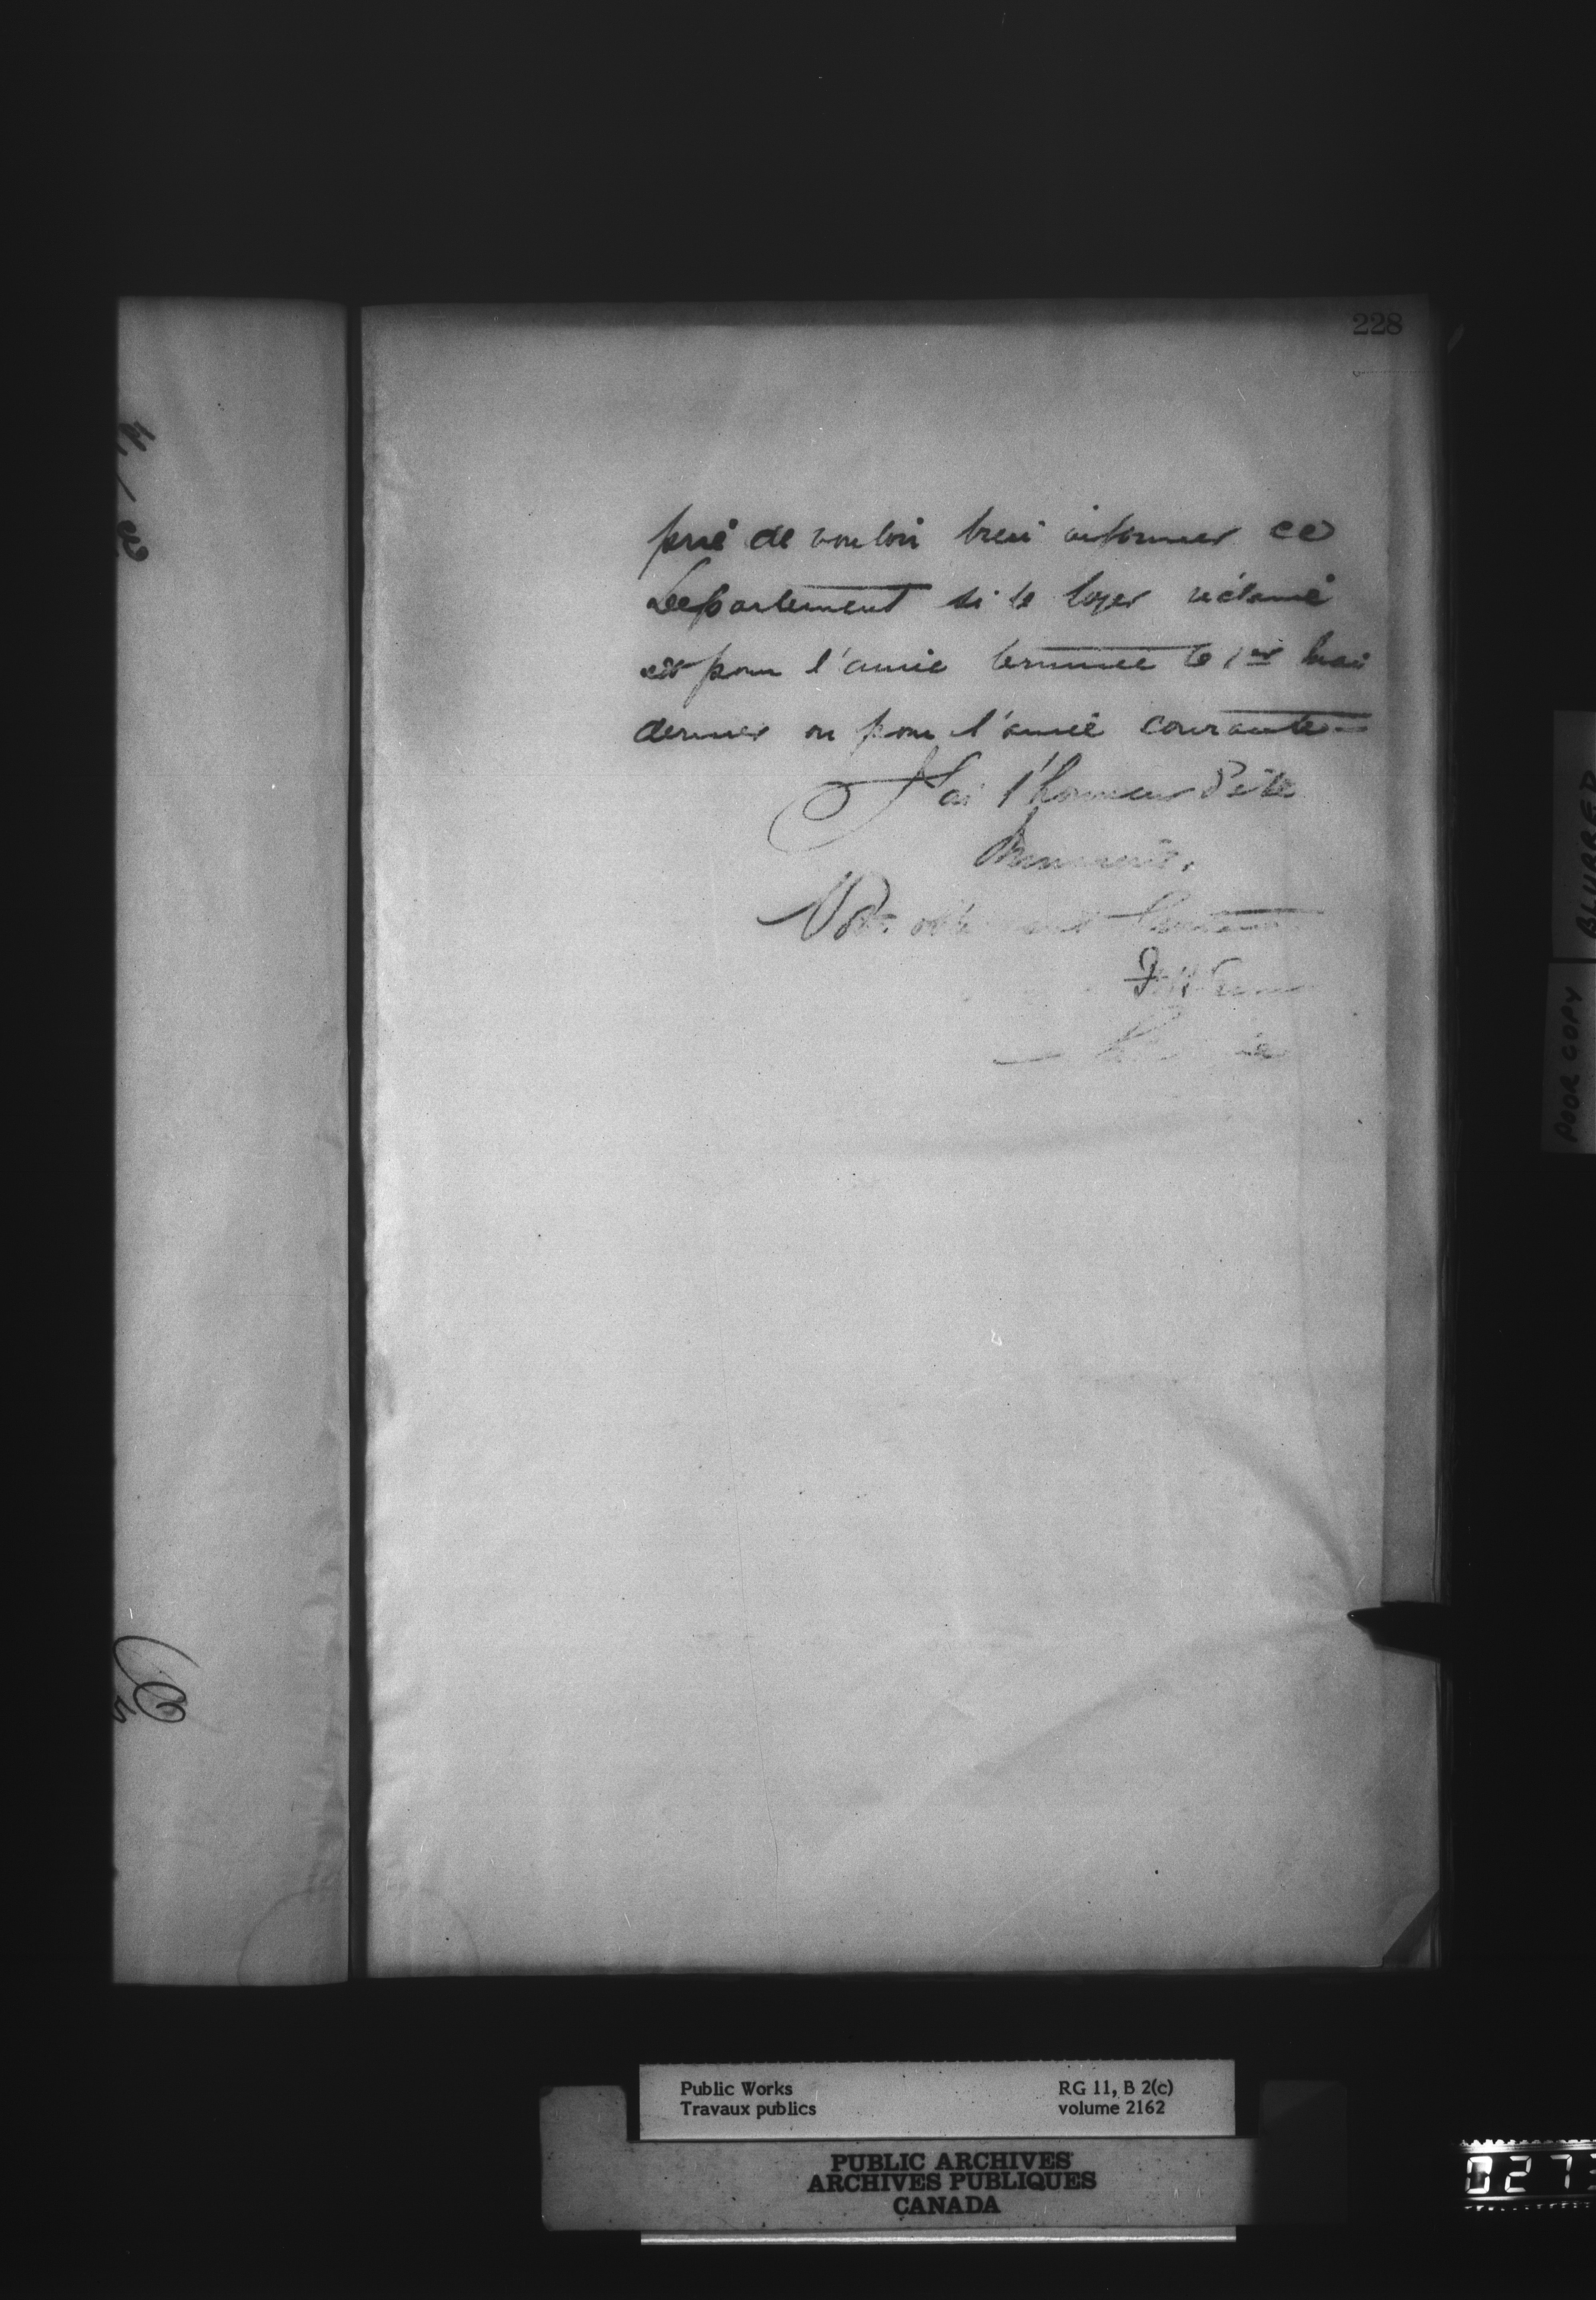 228
prié de vouloir bien informer ce
Département si le loyer réclamé
est pour l'année terminée le 1er mai
dernier ou pour l'année courante.
J'ai l'honneur d'être
Monsieur,
Votre obéissant Serviteur
Public Works
Travaux publics
RG 11, B 2(c)
volume 2162
PUBLIC ARCHIVES
ARCHIVES PUBLIQUES
CANADA
BLURRED
POOR COPY